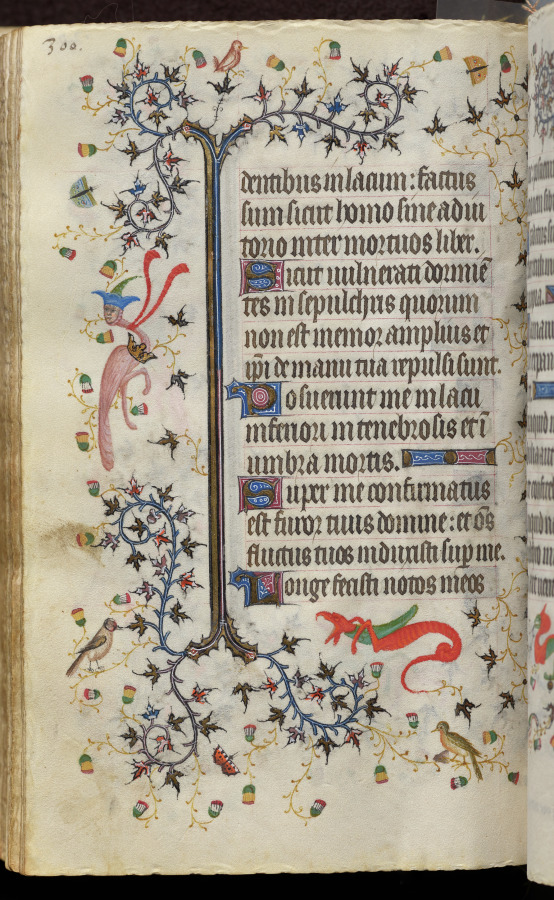 300.
dentibus in lacum: factus
sum sicut homo sine adiu
torio inter mortuos liber.
Sicut uulnerati dormiē
tes in sepulchris quorum
non est memor amplius et
ip̄i de manu tua repulsi sunt.
Posuerunt me in lacu
inferiori in tenebrosis et ī
umbra mortis.
Super me confirmatus
est furor tuus domine: et oēs
fluctus tuos induxisti sup̱ me.
Longe fecisti notos meos